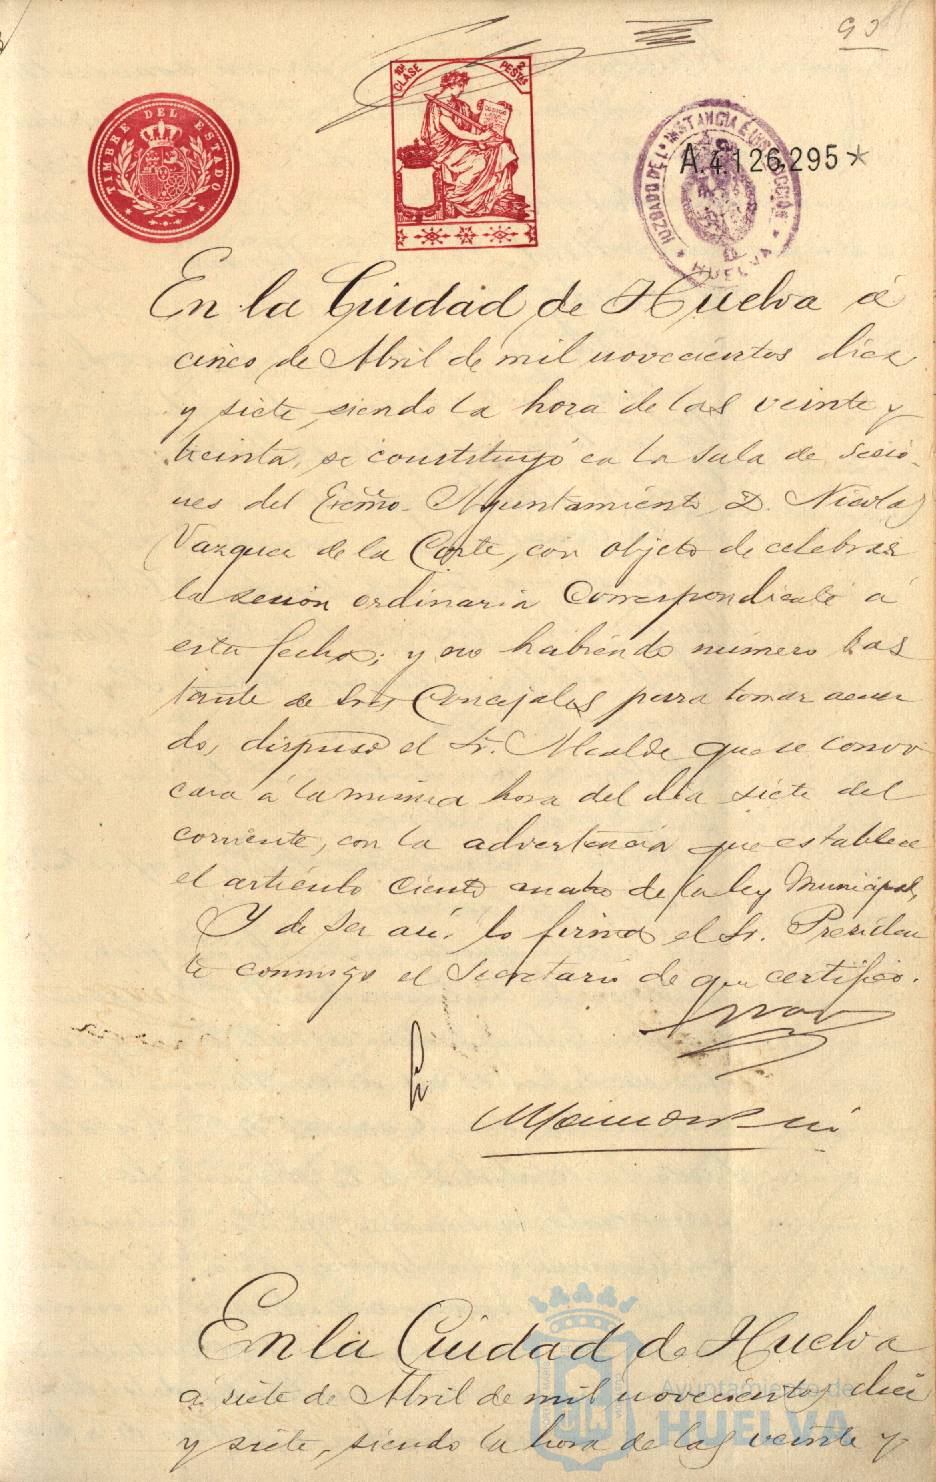 90
TIMBRE DEL ESTADO
10ª CLASE
2 PESTAS
JUZGADO DE 1ª INSTANCIA É INSTRUCCIÓN
HUELVA
A.4.126.295*
En la Ciudad de Huelva á
cinco de Abril de mil novecientos diez
y siete, siendo la hora de las veinte y
treinta, se constituyó en la sala de sesio-
nes del Excmo. Ayuntamiento D. Nicolas
Vazquez de la Corte, con objeto de celebrar
la sesión ordinaria correspondiente á
esta fecha; y no habiendo número bas
tante de Sres Concejales para tomar acuer
do, dispuso el Sr. Alcalde que se convo
cara á la misma hora del día siete del
corriente, con la advertencia que establece
el artículo ciento cuatro de la ley Municipal,
Y de ser así, lo firma el Sr. Presiden
te conmigo el Secretario de que certifico.
En la Ciudad de Huelva
á siete de Abril de mil novecientos diez
y siete, siendo la hora de las veinte y
Ayuntamiento de
HUELVA